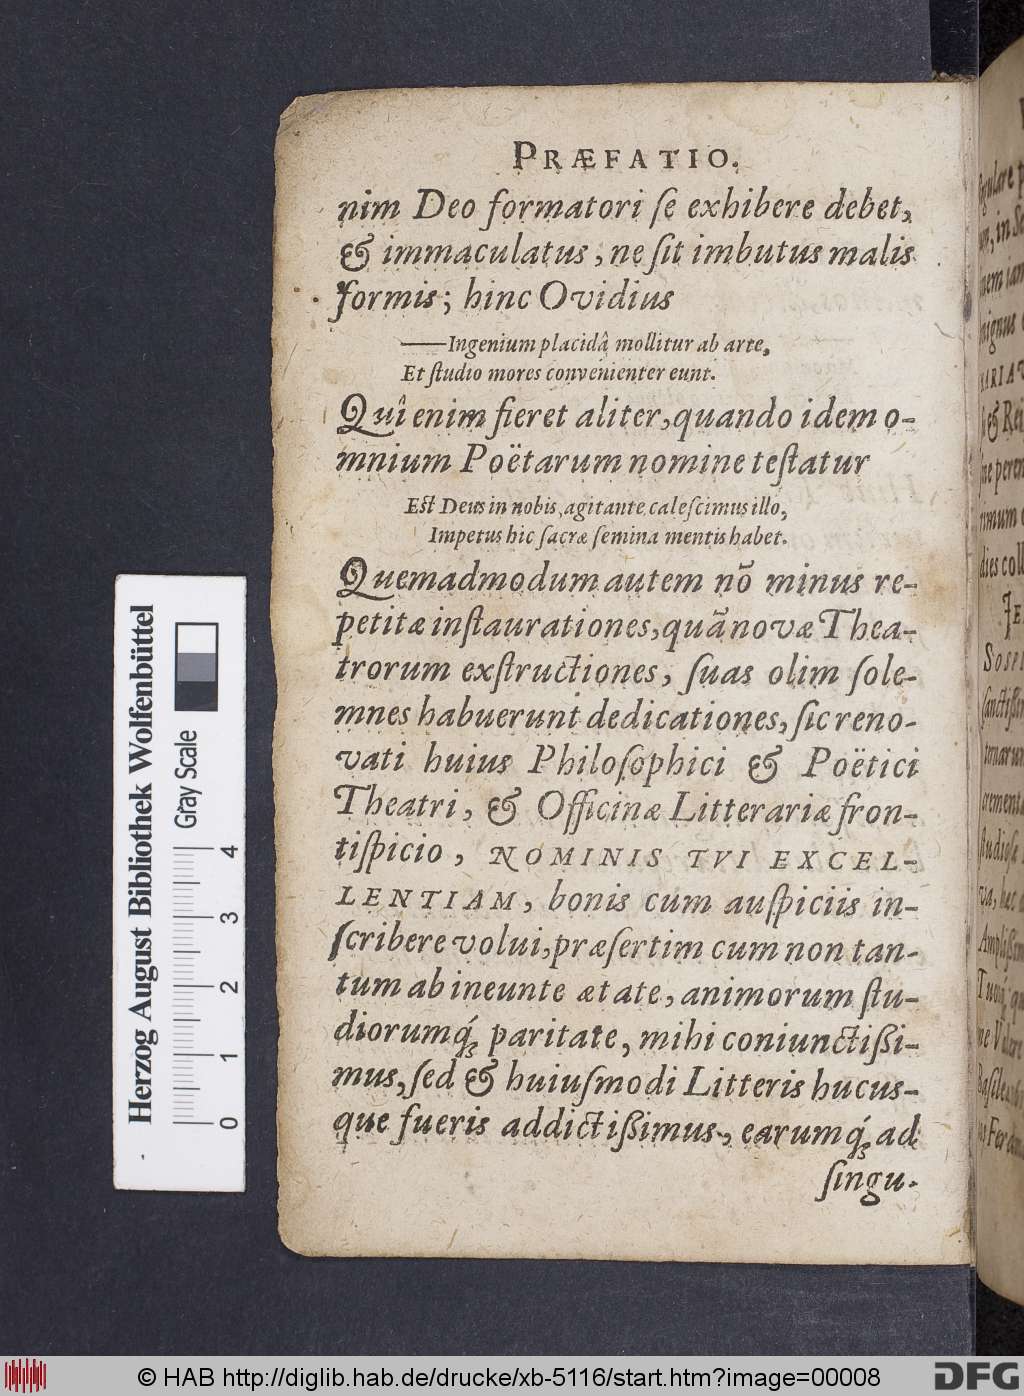 PRÆFATIO.
nim Deo formatori ſe exhibere debet,
& immaculatus, ne ſit imbutus malis
formis; hinc Ovidius
——Ingenium placidâ mollitur ab arte,
Et ſtudio mores convenienter eunt.
Quî enim fieret aliter, quando idem o-
mnium Poëtarum nomine teſtatur
Eſt Deus in nobis, agitante caleſcimus illo,
Impetus hic ſacræ ſemina mentis habet.
Quemadmodum autem nō minus re-
petitæ inſtaurationes, quā novæ Thea-
trorum exſtructiones, ſuas olim ſole-
mnes habuerunt dedicationes, ſic reno-
vati huius Philoſophici & Poëtici
Theatri, & Officinæ Litterariæ fron-
tiſpicio, NOMINIS TVI EXCEL-
LENTIAM, bonis cum auſpiciis in-
ſcribere volui, præſertim cum non tan-
tum ab ineunte ætate, animorum ſtu-
diorumq́; paritate, mihi coniunctißi-
mus, ſed & huiuſmodi Litteris hucus-
que fueris addictißimus, earumq́; ad
ſingu-
Herzog August Bibliothek Wolfenbüttel
Gray Scale
0 1 2 3 4
© HAB http://diglib.hab.de/drucke/xb-5116/start.htm?image=00008
DFG